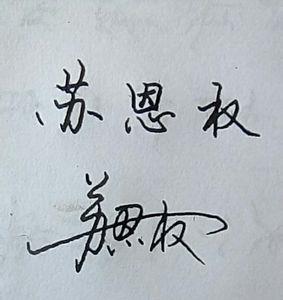 苏恩权
苏恩权